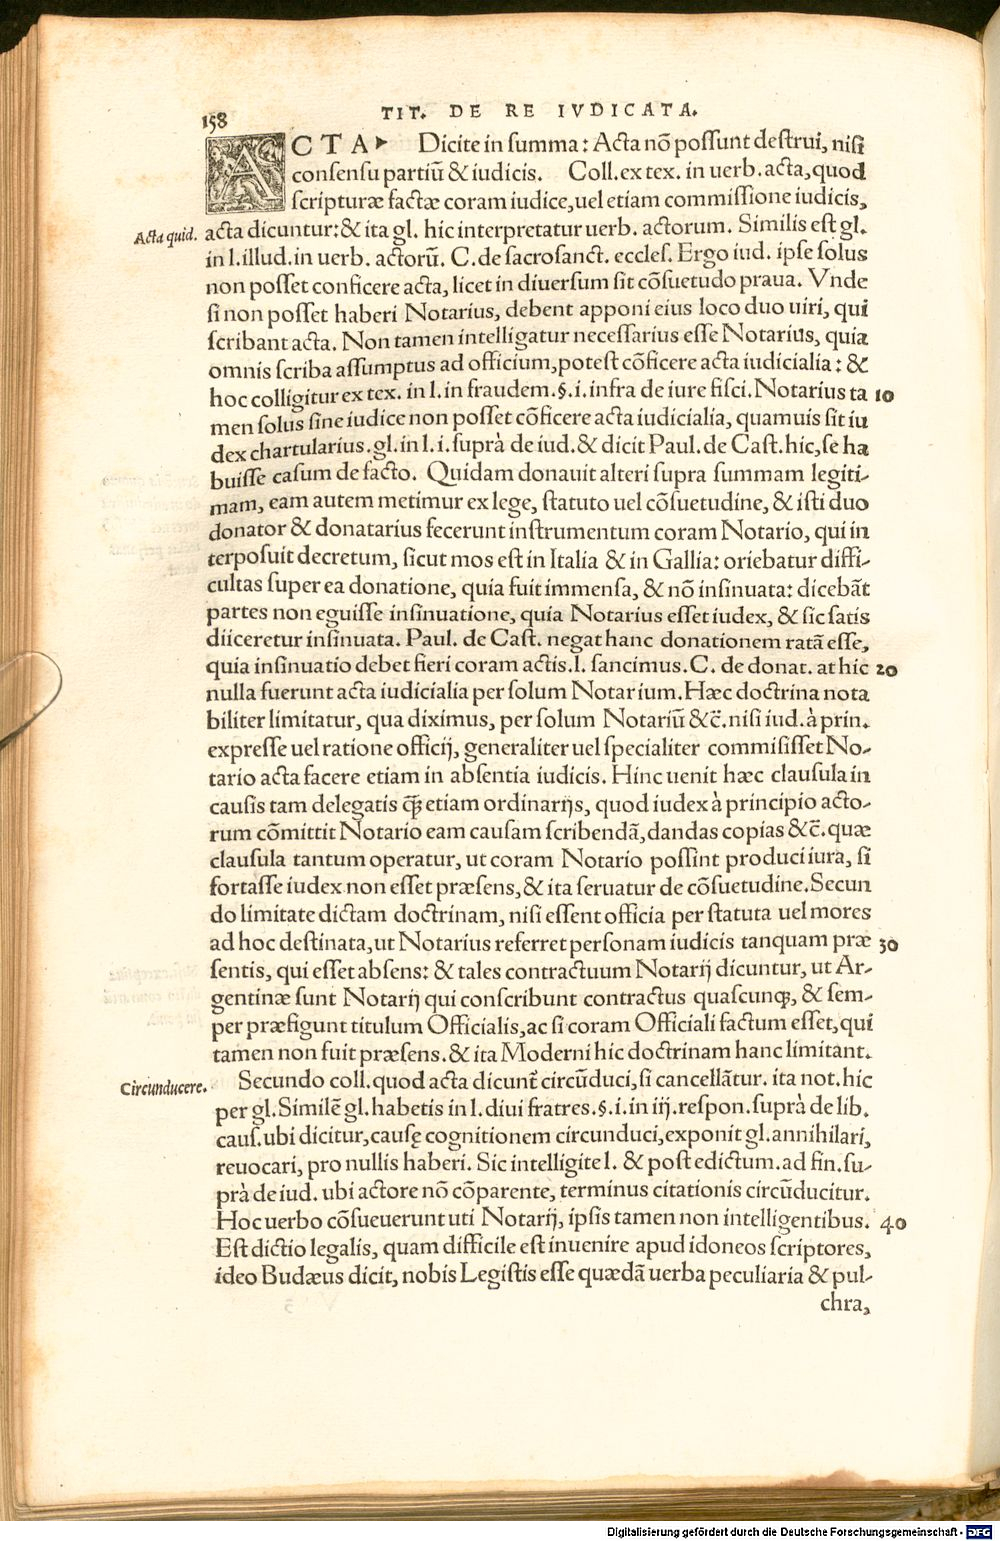 158
TIT. DE RE IVDICATA.
ACTA▸ Dicite in summa: Acta nō possunt destrui, nisi
consensu partiū & iudicis. Coll. ex tex. in uerb. acta, quod
scripturæ factæ coram iudice, uel etiam commissione iudicis,
Acta quid.
acta dicuntur: & ita gl. hic interpretatur uerb. actorum. Similis est gl.
in l. illud. in uerb. actorū. C. de sacrosanct. eccles. Ergo iud. ipse solus
non posset conficere acta, licet in diuersum sit cōsuetudo praua. Vnde
si non posset haberi Notarius, debent apponi eius loco duo uiri, qui
scribant acta. Non tamen intelligatur necessarius esse Notarius, quia
omnis scriba assumptus ad officium, potest cōficere acta iudicialia: &
hoc colligitur ex tex. in l. in fraudem. §. i. infra de iure fisci. Notarius ta 10
men solus sine iudice non posset cōficere acta iudicialia, quamuis sit iu
dex chartularius. gl. in l. i. suprà de iud. & dicit Paul. de Cast. hic, se ha
buisse casum de facto. Quidam donauit alteri supra summam legiti-
mam, eam autem metimur ex lege, statuto uel cōsuetudine, & isti duo
donator & donatarius fecerunt instrumentum coram Notario, qui in
terposuit decretum, sicut mos est in Italia & in Gallia: oriebatur diffi-
cultas super ea donatione, quia fuit immensa, & nō insinuata: dicebāt
partes non eguisse insinuatione, quia Notarius esset iudex, & sic satis
diiceretur insinuata. Paul. de Cast. negat hanc donationem ratā esse,
quia insinuatio debet fieri coram actis. l. sancimus. C. de donat. at hic 20
nulla fuerunt acta iudicialia per solum Notarium. Hæc doctrina nota
biliter limitatur, qua diximus, per solum Notariū &c̄. nisi iud. à prin.
expresse uel ratione officij, generaliter uel specialiter commisisset No-
tario acta facere etiam in absentia iudicis. Hinc uenit hæc clausula in
causis tam delegatis q̃ȝ etiam ordinarijs, quod iudex à principio acto-
rum cōmittit Notario eam causam scribendā, dandas copias &c̄. quæ
clausula tantum operatur, ut coram Notario possint produci iura, si
fortasse iudex non esset præsens, & ita seruatur de cōsuetudine. Secun
do limitate dictam doctrinam, nisi essent officia per statuta uel mores
ad hoc destinata, ut Notarius referret personam iudicis tanquam præ 30
sentis, qui esset absens: & tales contractuum Notarij dicuntur, ut Ar-
gentinæ sunt Notarij qui conscribunt contractus quascunqȝ, & sem-
per præfigunt titulum Officialis, ac si coram Officiali factum esset, qui
tamen non fuit præsens. & ita Moderni hic doctrinam hanc limitant.
Circunducere.
Secundo coll. quod acta dicunt̄ circūduci, si cancellātur. ita not. hic
per gl. Similē gl. habetis in l. diui fratres. §. i. in iij. respon. suprà de lib.
caus. ubi dicitur, causę cognitionem circunduci, exponit gl. annihilari,
reuocari, pro nullis haberi. Sic intelligite l. & post edictum. ad fin. su-
prà de iud. ubi actore nō cōparente, terminus citationis circūducitur.
Hoc uerbo cōsueuerunt uti Notarij, ipsis tamen non intelligentibus. 40
Est dictio legalis, quam difficile est inuenire apud idoneos scriptores,
ideo Budæus dicit, nobis Legistis esse quædā uerba peculiaria & pul-
chra,
Digitalisierung gefördert durch die Deutsche Forschungsgemeinschaft - DFG